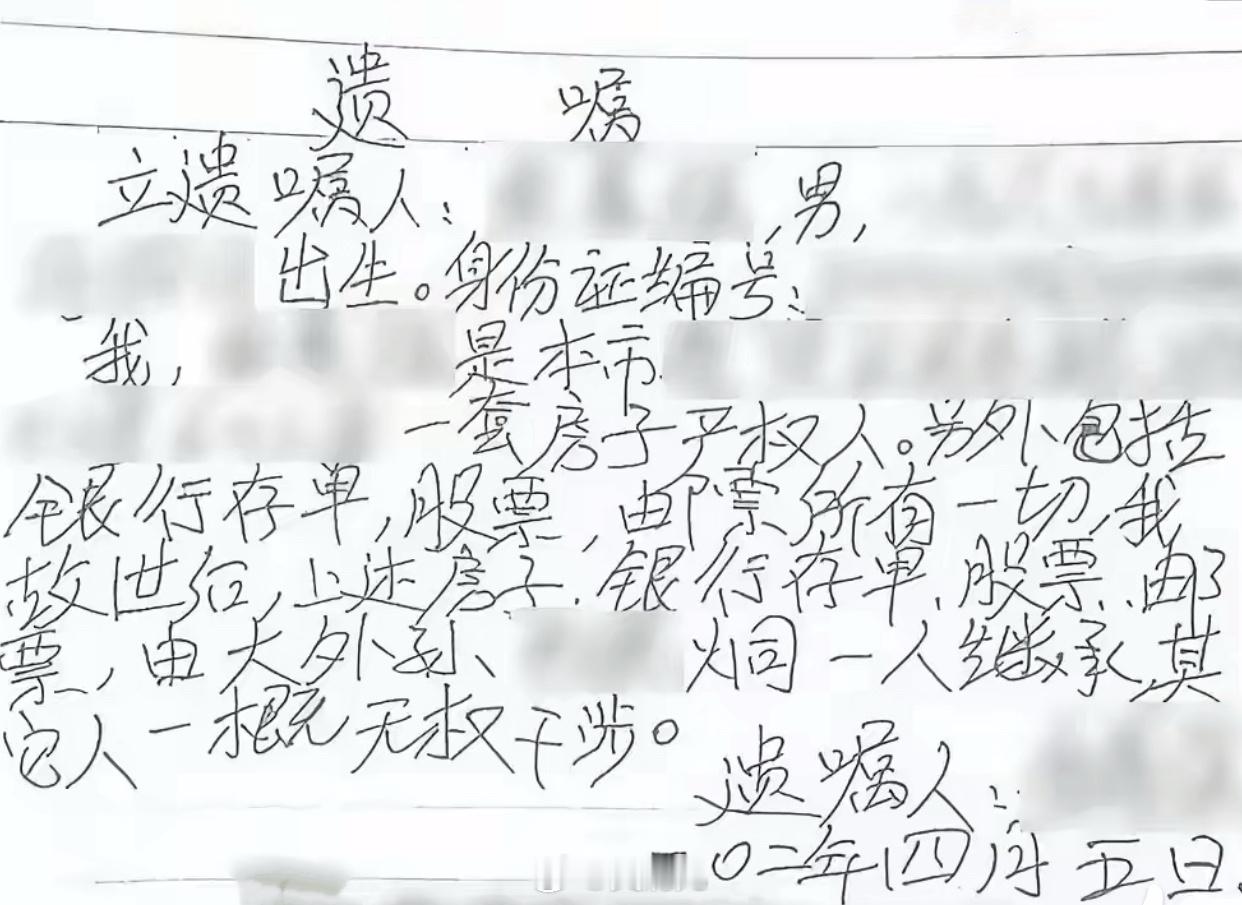 遗 嘱
立遗嘱人： ，男，
出生。身份证编号：
我， 是本市
一套房子产权人。另外包括
银行存单，股票，邮票所有一切，我
故世后，上述房子、银行存单、股票、邮
票，由大外孙、 炯一人继承，其
它人一概无权干涉。
遗嘱人：
0二年四月五日.